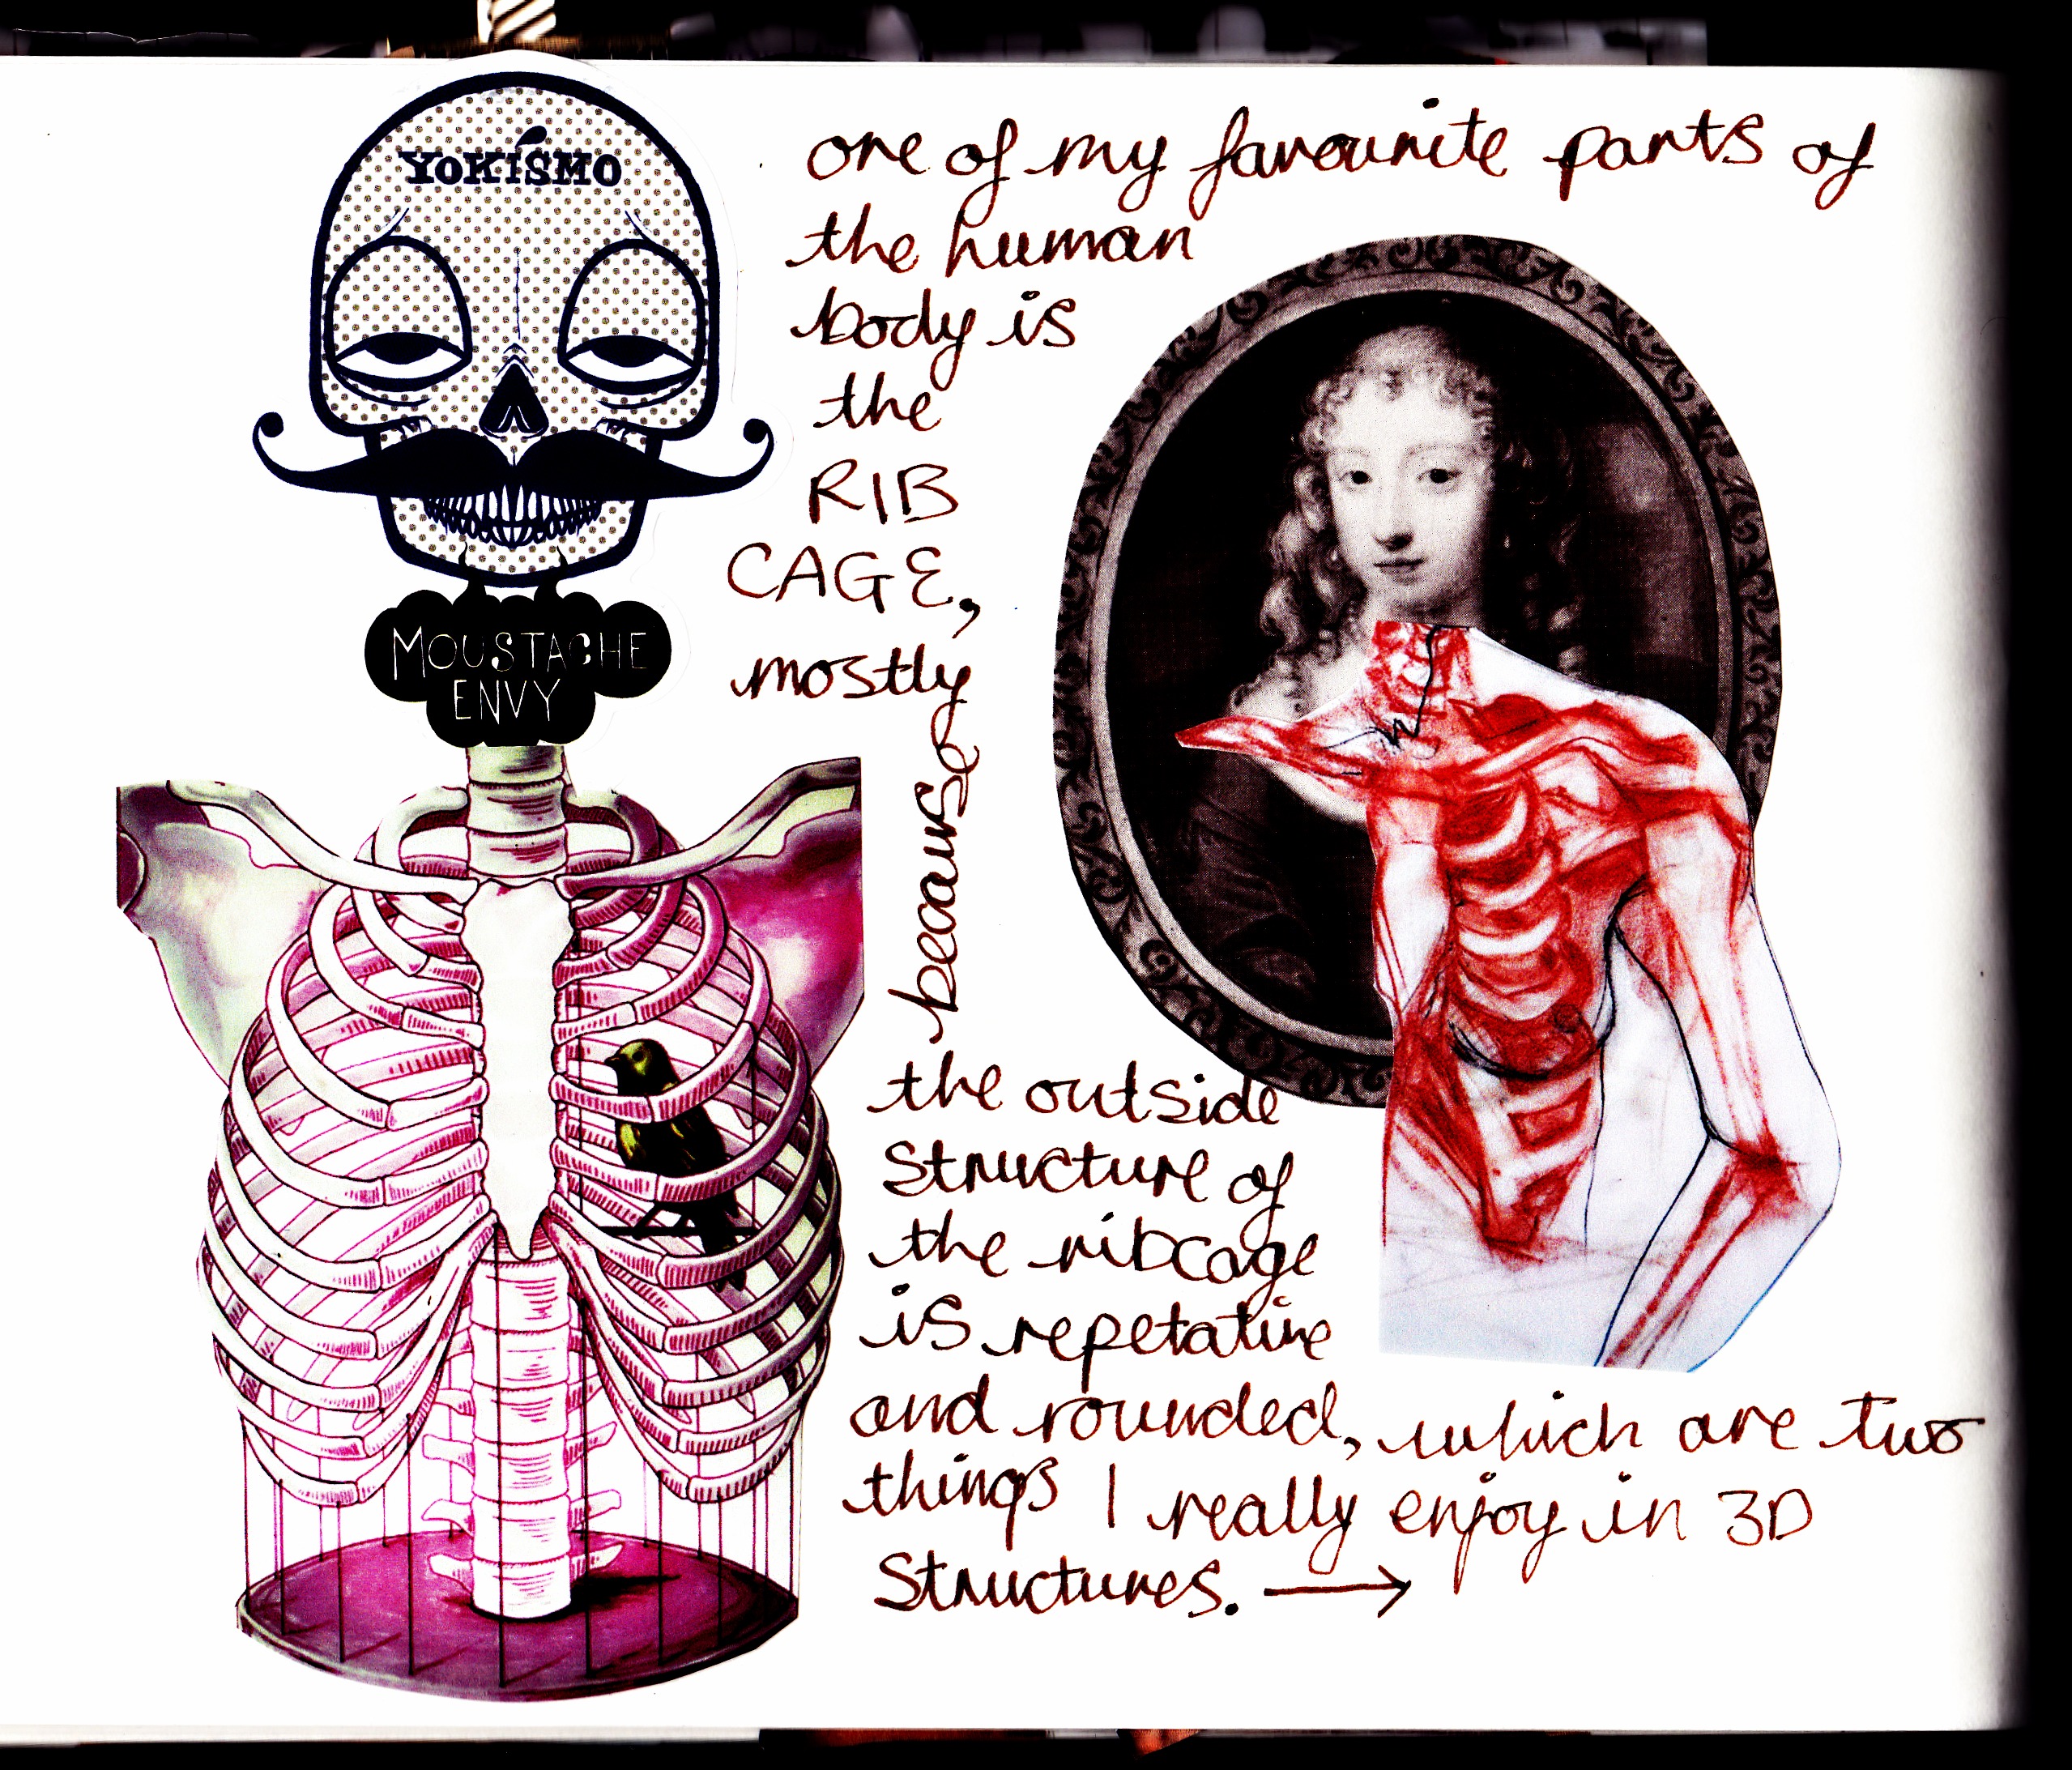 YoKÍSMO
MOUSTACHE
ENVY
one of my favourite parts of
the human
body is
the
RIB
CAGE,
mostly
because
the outside
structure of
the ribcage
is repetative
and rounded, which are two
things I really enjoy in 3D
structures. →